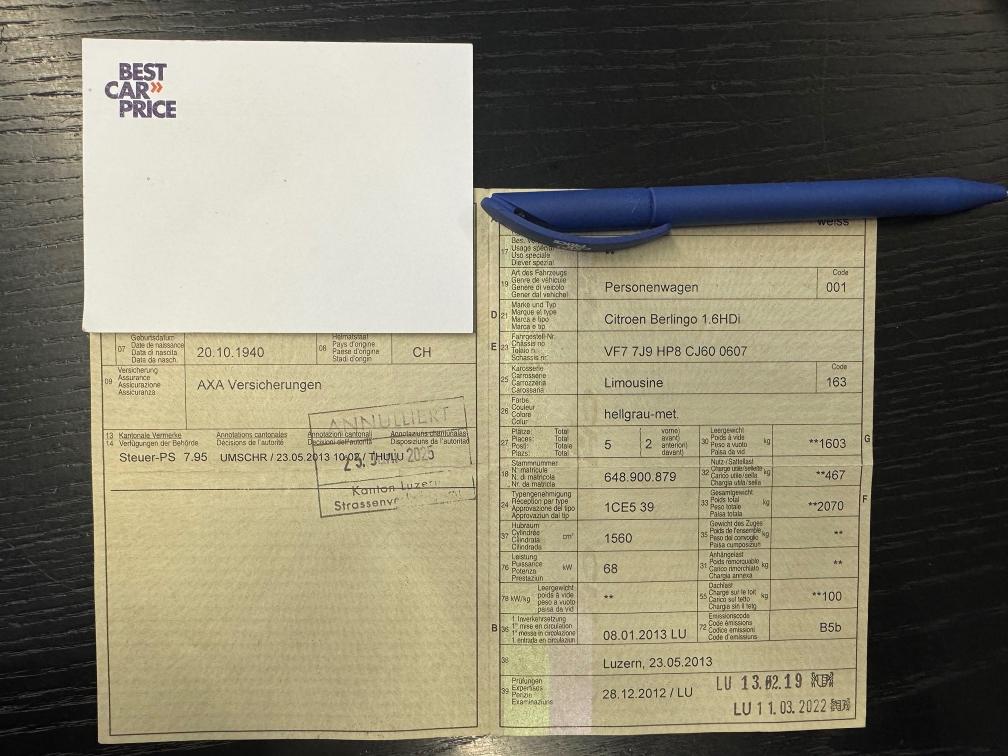 BEST
CAR»
PRICE
07 Geburtsdatum Date de naissance Data di nascita Data da nasch. 20.10.1940 08 Heimatstaat Pays d'origine Paese d'origine Stadi d'origin CH
09 Versicherung Assurance Assicurazione Assicuranza AXA Versicherungen
13 Kantonale Vermerke Annotations cantonales Annotazioni cantonali Annotaziuns chantunalas
14 Verfügungen der Behörde Décisions de l'autorité Decisioni dell'autorità Disposiziuns da l'autoritad
Steuer-PS 7.95 UMSCHR / 23.05.2013 10:02 / THULU
ANNULLIERT
2025
Kanton Luzern
weiss
17 Usage spécial Uso speciale Diever spezial **
19 Art des Fahrzeugs Genre de véhicule Genere di veicolo Gener dal vehichel Personenwagen Code 001
D 21 Marke und Typ Marque et type Marca e tipo Marca e tip Citroen Berlingo 1.6HDi
E 23 Fahrgestell-Nr. Châssis no Telaio n. Schassis nr. VF7 7J9 HP8 CJ60 0607
25 Karosserie Carrosserie Carrozzeria Carossaria Limousine Code 163
26 Farbe Couleur Colore Colur hellgrau-met.
27 Plätze: Total Places: Total Posti: Totale Plazs: Total 5 2 vorne) avant) anteriori) davant) 30 Leergewicht Poids à vide Peso a vuoto Paisa da vid kg **1603 G
18 Stammnummer N° matricule N. di matricola Nr. da matricla 648.900.879 32 Nutz-/Sattellast Charge utile/sellette Carico utile/sella Chargia utila/sella kg **467
24 Typengenehmigung Réception par type Approvazione del tipo Approvaziun dal tip 1CE5 39 33 Gesamtgewicht Poids total Peso totale Paisa totala kg **2070 F
37 Hubraum Cylindrée Cilindrata Cilindrada cm³ 1560 35 Gewicht des Zuges Poids de l'ensemble Peso del convoglio Paisa cumposiziun kg **
76 Leistung Puissance Potenza Prestaziun kW 68 31 Anhängelast Poids remorquable Carico rimorchiato Chargia annexa kg **
78 kW/kg Leergewicht poids à vide peso a vuoto paisa da vid ** 55 Dachlast Charge sur le toit Carico sul tetto Chargia sin il tetg kg **100
B 36 1. Inverkehrsetzung 1re mise en circulation 1a messa in circolazione 1. entrada en circulaziun 08.01.2013 LU 72 Emissionscode Code émissions Codice emissioni Code d'emissiuns B5b
38 Luzern, 23.05.2013
39 Prüfungen Expertises Perizie Examinaziuns 28.12.2012 / LU LU 13.02.19
LU 11.03.2022